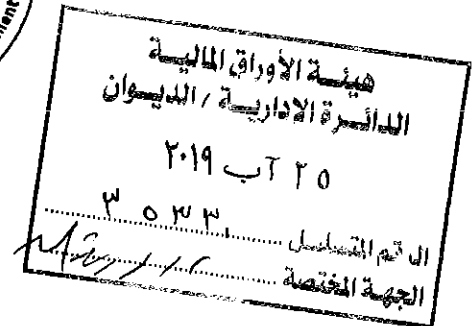 ment
هيئة الأوراق المالية
الدائرة الادارية / الديوان
٢٥ آب ٢٠١٩
الرقم المتسلسل ٣٥٣٣
الجهة المختصة